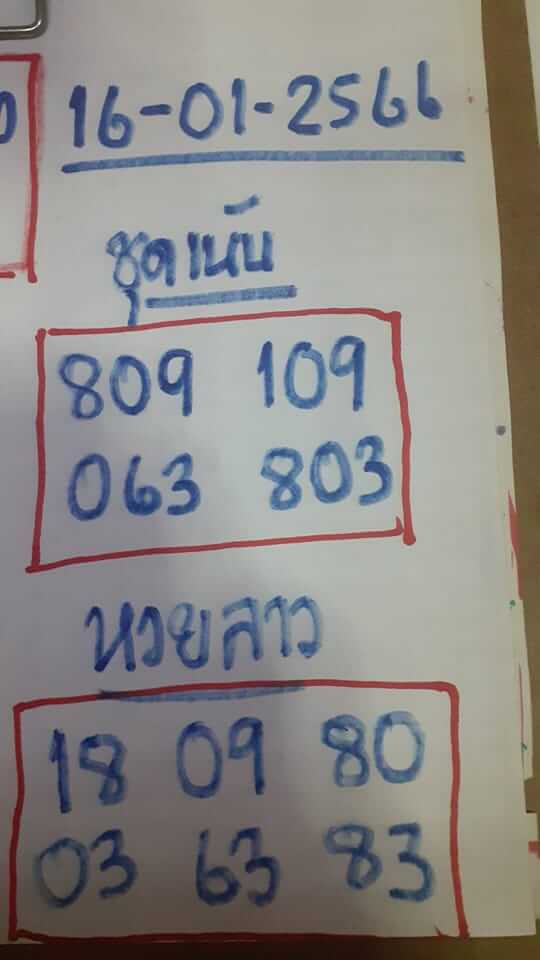 16-01-2566
ชุดเน้น
809 109
063 803
หวยลาว
18 09 80
03 63 83